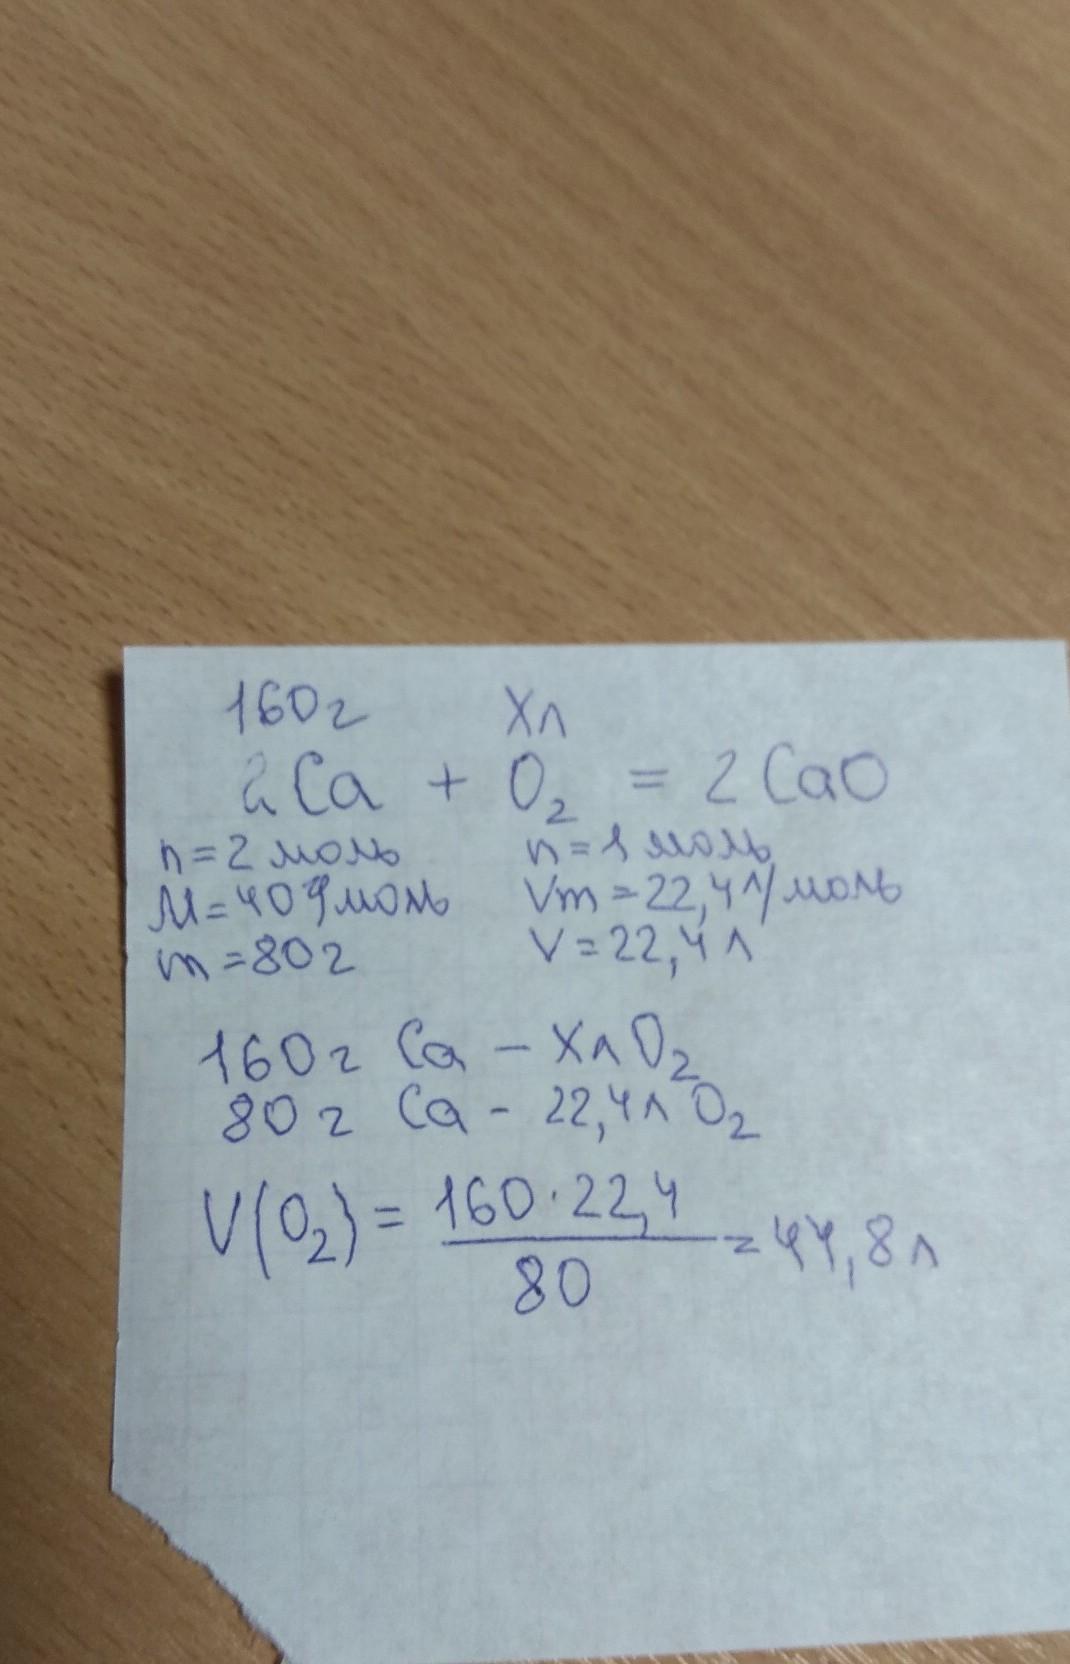 160г Xл
2Ca + O₂ = 2CaO
n=2 моль n=1 моль
M=40 г/моль Vm=22,4 л/моль
m=80г V=22,4 л
160г Ca - Xл O₂
80г Ca - 22,4л O₂
V(O₂) = 160·22,4 / 80 = 44,8 л